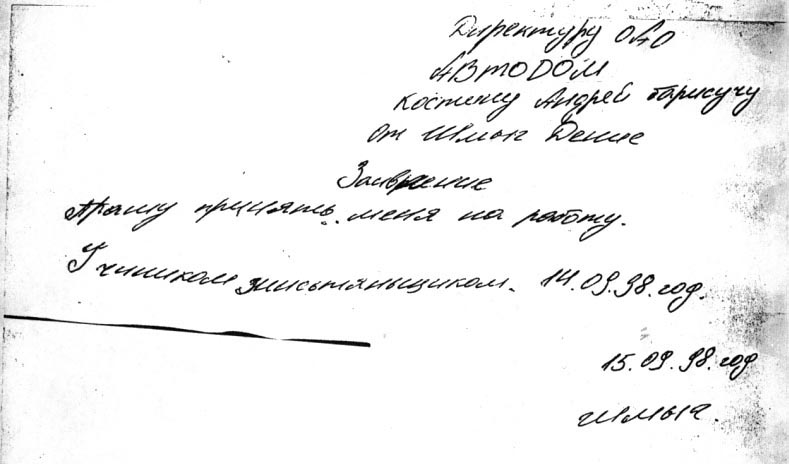 Директуру ОАО
АВТОДОМ
Костину Андрей Барисучу
от Шмыг Денис
Заивление
Прашу принять меня на работу.
Учиником жистяньщиком. 14.09.98.год.
15.09.98.год
Шмыг.